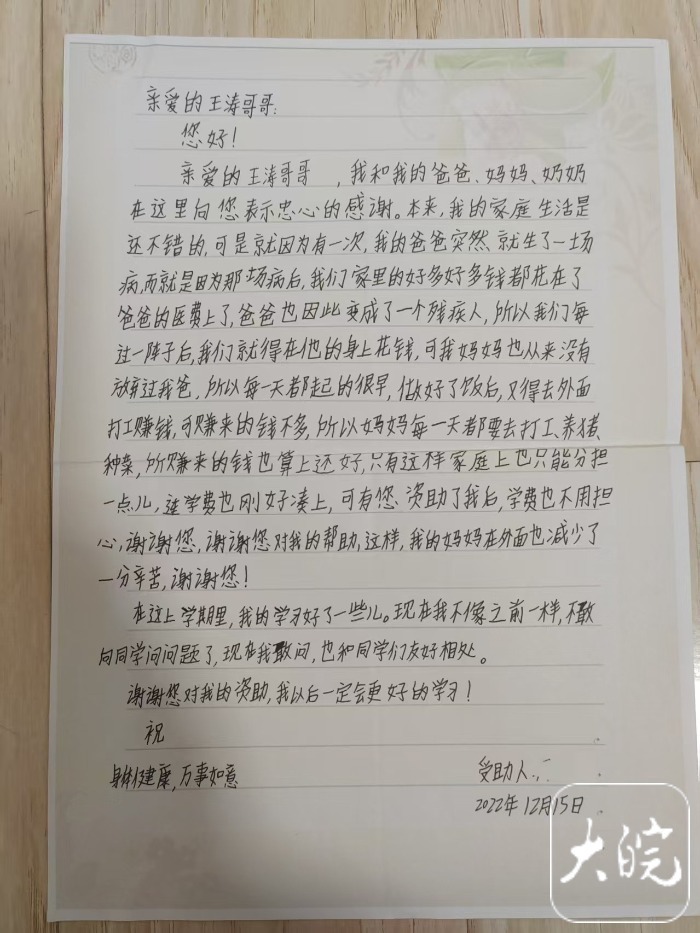 亲爱的王涛哥哥:
您好!
亲爱的王涛哥哥,我和我的爸爸、妈妈、奶奶
在这里向您表示忠心的感谢。本来,我的家庭生活是
还不错的,可是就因为有一次,我的爸爸突然就生了一场
病,而就是因为那场病后,我们家里的好多好多钱都花在了
爸爸的医费上了,爸爸也因此变成了一个残疾人,所以我们每
过一阵子后,我们就得在他的身上花钱,可我妈妈也从来没有
放弃过我爸,所以每一天都起的很早,做好了饭后,又得去外面
打工赚钱,可赚来的钱不多,所以妈妈每一天都要去打工、养猪、
种菜,所赚来的钱也算上还好,只有这样家庭上也只能分担
一点儿,连学费也刚好凑上,可有您资助了我后,学费也不用担
心,谢谢您,谢谢您对我的帮助,这样,我的妈妈在外面也减少了
一分辛苦,谢谢您!
在这上学期里,我的学习好了一些儿。现在我不像之前一样,不敢
向同学问问题了,现在我敢问,也和同学们友好相处。
谢谢您对我的资助,我以后一定会更好的学习!
祝
身体健康,万事如意 受助人:
2022年12月15日
大皖